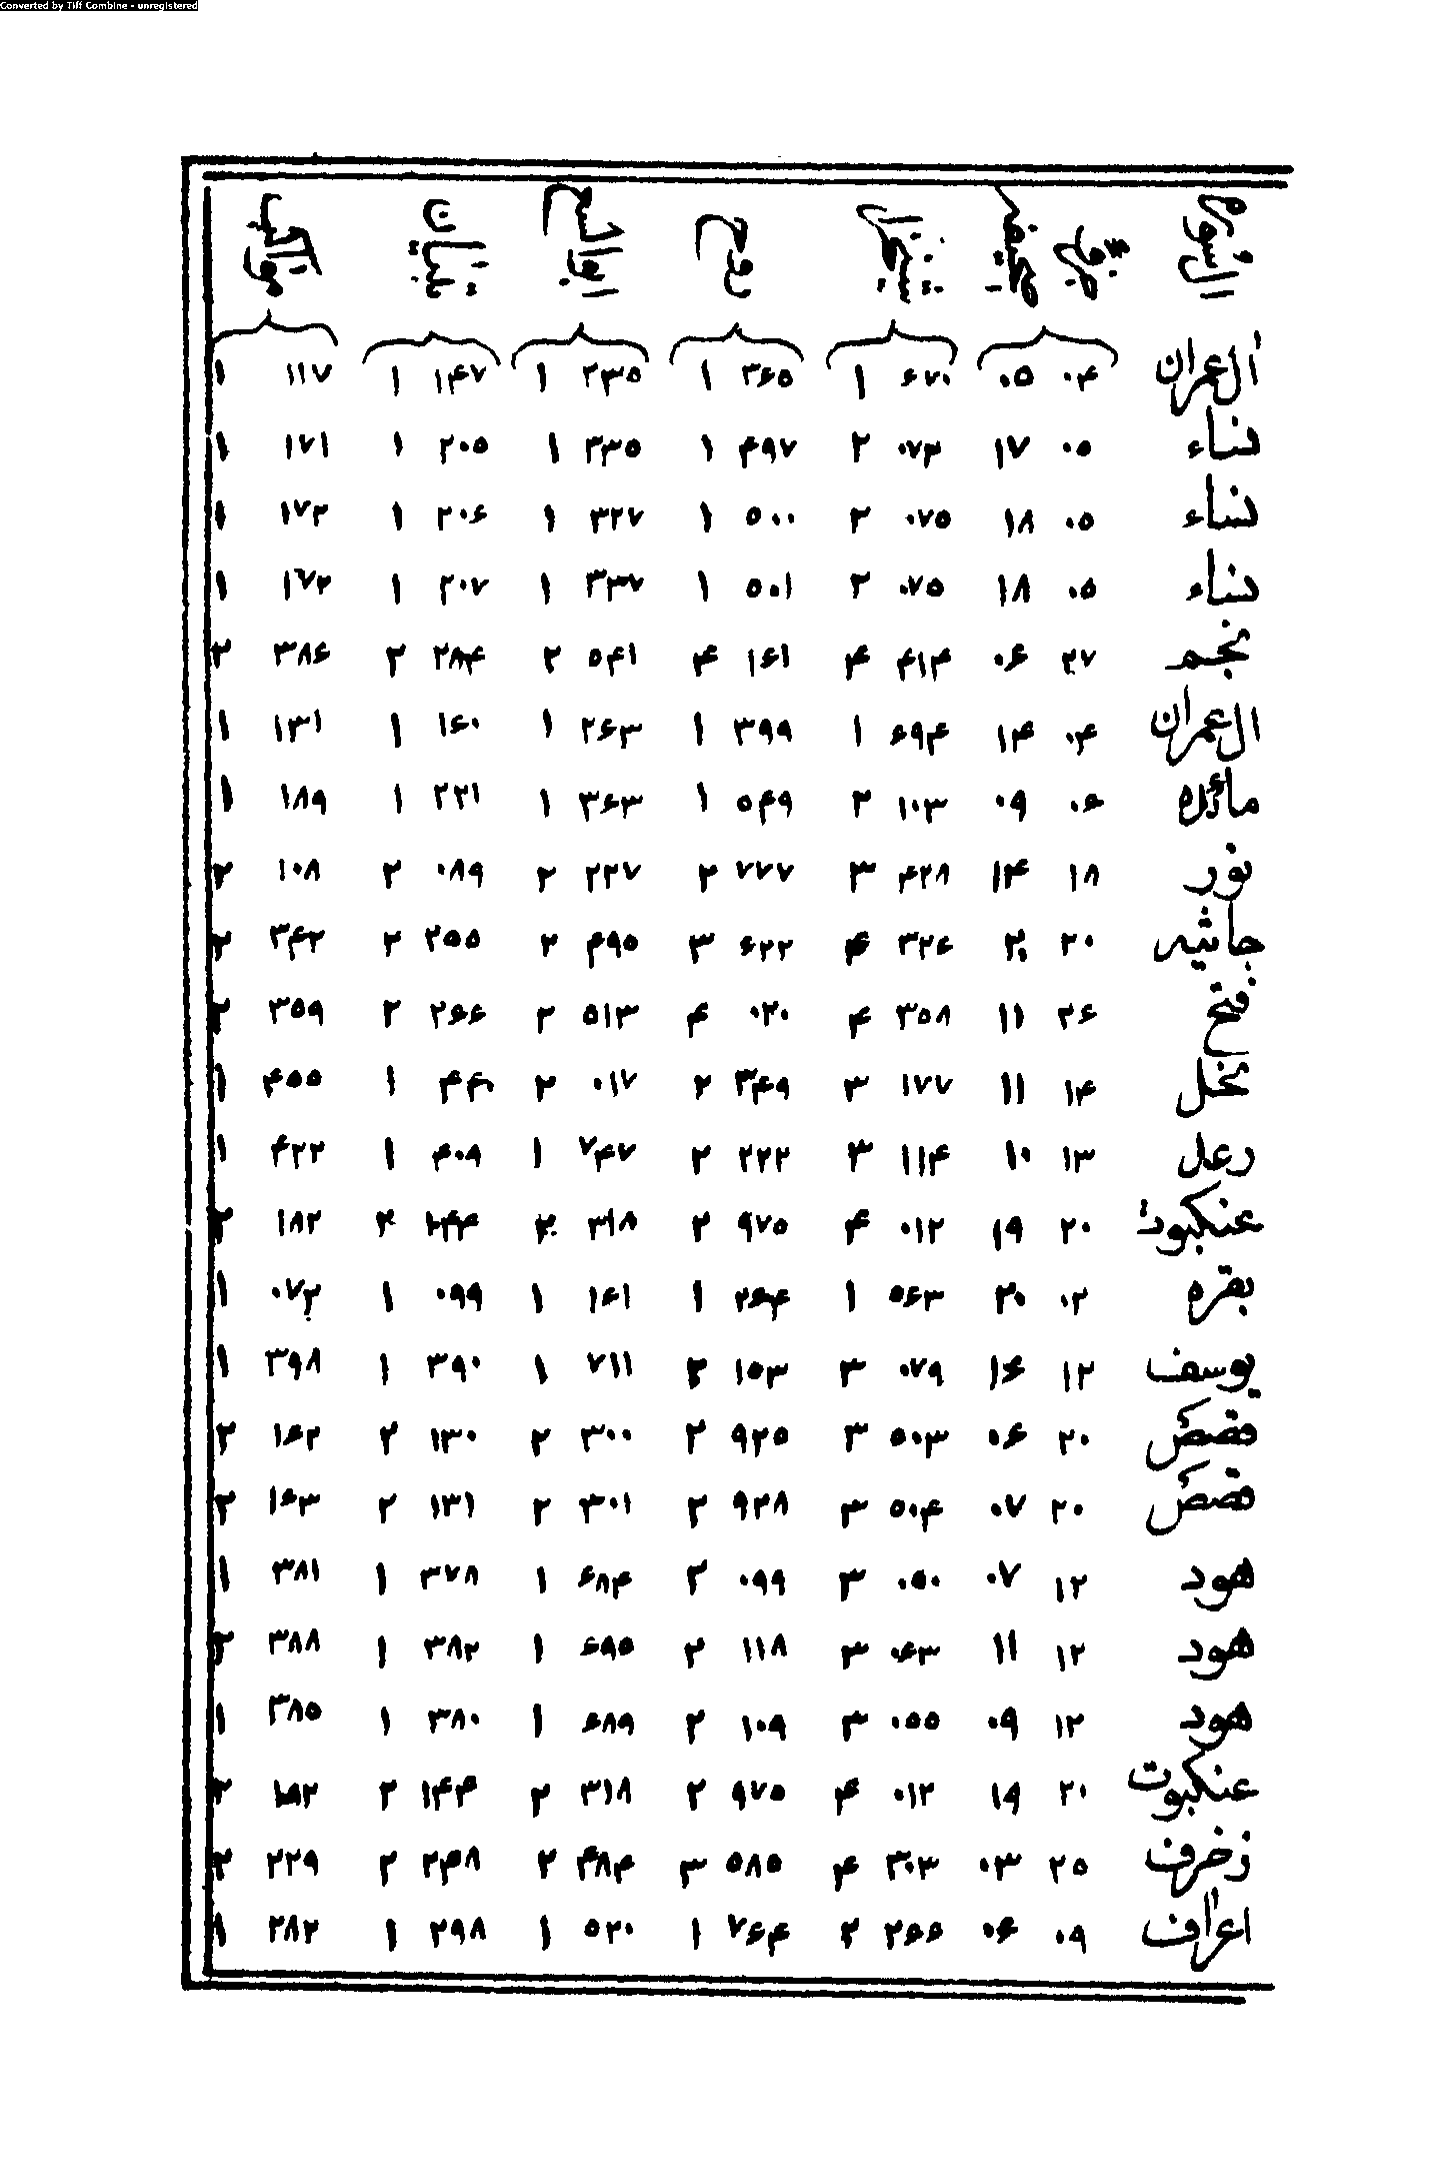 Converted by Tiff Combine - unregistered
اٰل عمران ۰۴ ۰۵ ۶۷۰ ۱ ۳۶۵ ۱ ۲۳۵ ۱ ۱۴۷ ۱ ۱۱۷ ۱
نساء ۰۵ ۱۷ ۰۷۳ ۲ ۴۹۷ ۱ ۳۳۵ ۱ ۲۰۵ ۱ ۱۷۱ ۱
نساء ۰۵ ۱۸ ۰۷۵ ۲ ۵۰۰ ۱ ۳۲۷ ۱ ۲۰۶ ۱ ۱۷۲ ۱
نساء ۰۵ ۱۸ ۰۷۵ ۲ ۵۰۱ ۱ ۳۳۷ ۱ ۲۰۷ ۱ ۱۷۲ ۱
نجم ۲۷ ۰۶ ۴۱۴ ۴ ۱۶۱ ۴ ۵۴۱ ۲ ۲۸۴ ۲ ۳۸۶ ۲
ال عمران ۰۴ ۱۴ ۶۹۴ ۱ ۳۹۹ ۱ ۲۶۳ ۱ ۱۶۰ ۱ ۱۳۱ ۱
مائدہ ۰۶ ۰۹ ۱۰۳ ۲ ۵۴۹ ۱ ۳۶۳ ۱ ۲۲۱ ۱ ۱۸۹ ۱
نور ۱۸ ۱۴ ۴۲۸ ۳ ۷۷۷ ۲ ۲۲۷ ۲ ۰۸۹ ۲ ۱۰۸ ۲
جاثیہ ۲۰ ۲۰ ۳۲۶ ۴ ۶۲۲ ۳ ۴۹۵ ۲ ۲۵۵ ۲ ۳۴۲ ۲
فتح ۲۶ ۱۱ ۳۵۸ ۴ ۰۲۰ ۴ ۵۱۳ ۲ ۲۶۶ ۲ ۳۵۹ ۲
نحل ۱۴ ۱۱ ۱۷۷ ۳ ۳۴۹ ۲ ۰۱۷ ۲ ۴۴۰ ۱ ۴۵۵ ۱
رعد ۱۳ ۱۰ ۱۱۴ ۳ ۲۲۲ ۲ ۷۴۷ ۱ ۴۰۹ ۱ ۴۲۲ ۱
عنکبوت ۲۰ ۱۹ ۰۱۲ ۴ ۹۷۵ ۲ ۳۱۸ ۲ ۱۴۴ ۲ ۱۸۲ ۲
بقرہ ۰۲ ۲۰ ۵۶۳ ۱ ۲۶۴ ۱ ۱۶۱ ۱ ۰۹۹ ۱ ۰۷۲ ۱
یوسف ۱۲ ۱۶ ۰۷۹ ۳ ۱۵۳ ۲ ۷۱۱ ۱ ۳۹۰ ۱ ۳۹۸ ۱
قصص ۲۰ ۰۶ ۵۰۳ ۳ ۹۲۵ ۲ ۳۰۰ ۲ ۱۳۰ ۲ ۱۶۲ ۲
قصص ۲۰ ۰۷ ۵۰۴ ۳ ۹۲۸ ۲ ۳۰۱ ۲ ۱۳۱ ۲ ۱۶۳ ۲
هود ۱۲ ۰۷ ۰۵۰ ۳ ۰۹۹ ۲ ۶۸۴ ۱ ۳۷۸ ۱ ۳۸۱ ۱
هود ۱۲ ۱۱ ۰۶۳ ۳ ۱۱۸ ۲ ۶۹۵ ۱ ۳۸۲ ۱ ۳۸۸ ۲
هود ۱۲ ۰۹ ۰۵۵ ۳ ۱۰۹ ۲ ۶۸۹ ۱ ۳۸۰ ۱ ۳۸۵ ۱
عنکبوت ۲۰ ۱۹ ۰۱۲ ۴ ۹۷۵ ۲ ۳۱۸ ۲ ۱۴۴ ۲ ۱۹۲ ۲
زخرف ۲۵ ۰۳ ۳۰۳ ۴ ۵۸۵ ۳ ۴۸۴ ۲ ۲۴۸ ۲ ۲۲۹ ۲
اعراف ۰۹ ۰۶ ۲۶۶ ۲ ۷۶۴ ۱ ۵۲۰ ۱ ۲۹۸ ۱ ۲۸۲ ۱